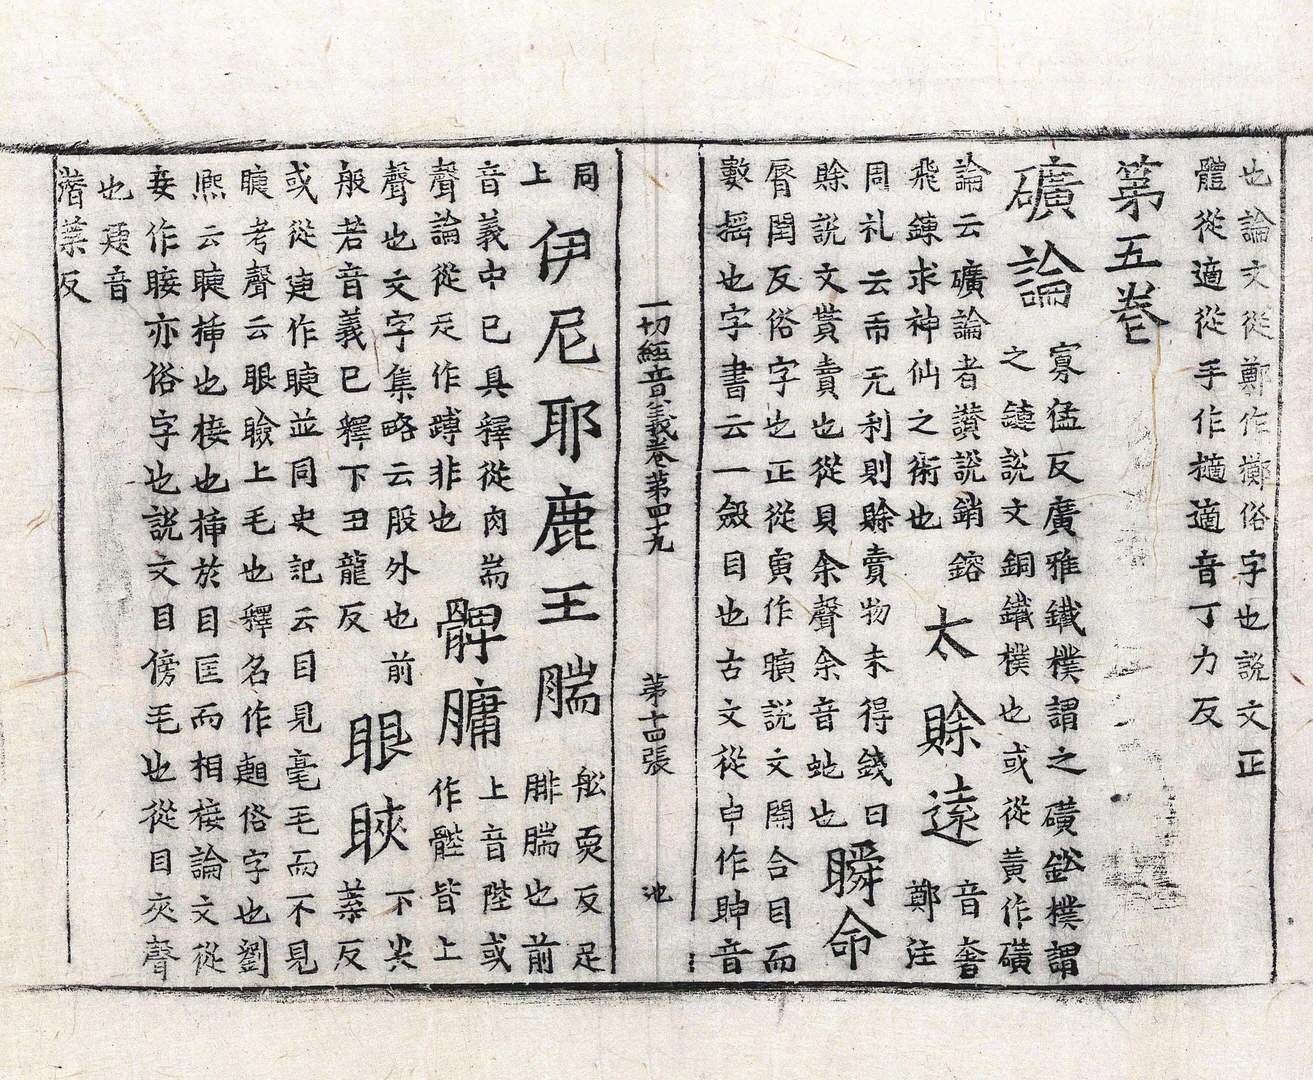 也論文從鄭作擲俗字也說文正
體從適從手作擿適音丁力反
第五卷
礦論 寡猛反廣雅鐵樸謂之礦鈆樸謂
之鏈說文銅鐵樸也或從黃作磺
論云礦論者讚說銷鎔 太賒遠 音奢
飛鍊求神仙之術也 鄭注
周礼云帀无利則賒賣物未得錢曰
賒說文貰賣也從貝余聲余音虵也 瞬命
脣閏反俗字也正從寅作瞚說文開合目而
數揺也字書云一斂目也古文從申作眒音
一切經音義卷第四十九 第十四張 池
同上 伊尼耶鹿王腨 舩耎反足
腓腨也前
音義中已具釋從肉耑
聲論從足作蹲非也 髀膞 上音陛或
作䏶皆上
聲也文字集略云股外也前
般若音義已釋下丑龍反 眼䀹 下尖
葉反
或從疌作睫並同史記云目見毫毛而不見
睫考聲云眼瞼上毛也釋名作俗字也劉
熈云睫揷也椄也揷於目匡而相椄論文從
妾作亦俗字也說文目傍毛也從目夾聲
也疌音
潛葉反